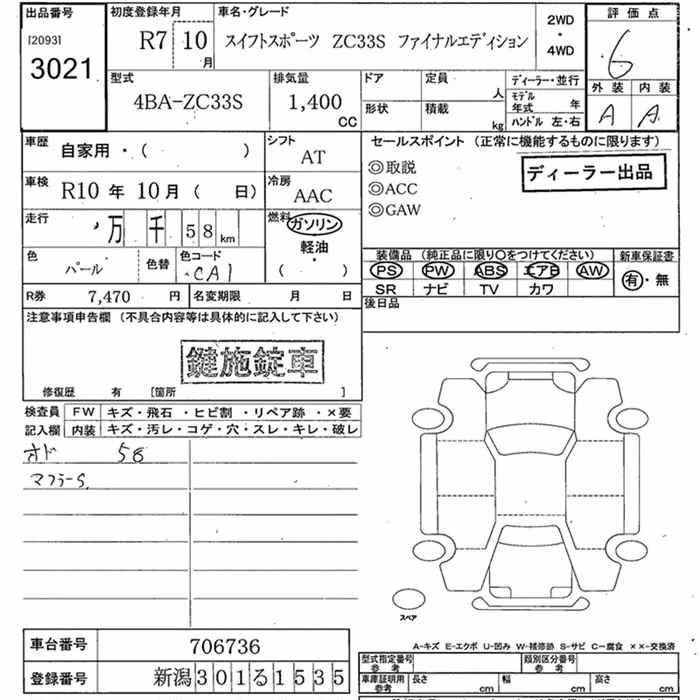 出品番号 初度登録年月 車名・グレード 2WD・4WD 評価点
[2093] 3021 R7 10月 スイフトスポーツ ZC33S ファイナルエディション 6
型式 排気量 ドア 定員 人 ディーラー・並行 外装 内装
4BA-ZC33S 1,400 CC 形状 積載 kg モデル年式 年 A A
ハンドル 左・右
車歴 自家用・( ) シフト AT セールスポイント (正常に機能するものに限ります)
◎取説 ディーラー出品
車検 R10年 10月( 日) 冷房 AAC ◎ACC
◎GAW
走行 万 千 58 km 燃料 ガソリン
軽油・
( )
色 パール 色替 色コード CA1 装備品 (純正品に限り○をつけてください) 新車保証書
PS PW ABS エアB AW 有・無
R券 7,470 円 名変期限 月 日 SR ナビ TV カワ
後日品
注意事項申告欄 (不具合内容等は具体的に記入して下さい)
鍵施錠車
修復歴 有 [箇所 ]
検査員記入欄 FW キズ・飛石・ヒビ割・リペア跡・×要
内装 キズ・汚レ・コゲ・穴・スレ・キレ・破レ
オド 58
マフラーS
スペア
A-キズ E-エクボ U-凹み W-補修跡 S-サビ C-腐食 ××-交換済
車台番号 706736 型式指定番号 参考 類別区分番号 参考
登録番号 新潟301る1535 車庫証明用 参考 長さ cm 幅 cm 高さ cm